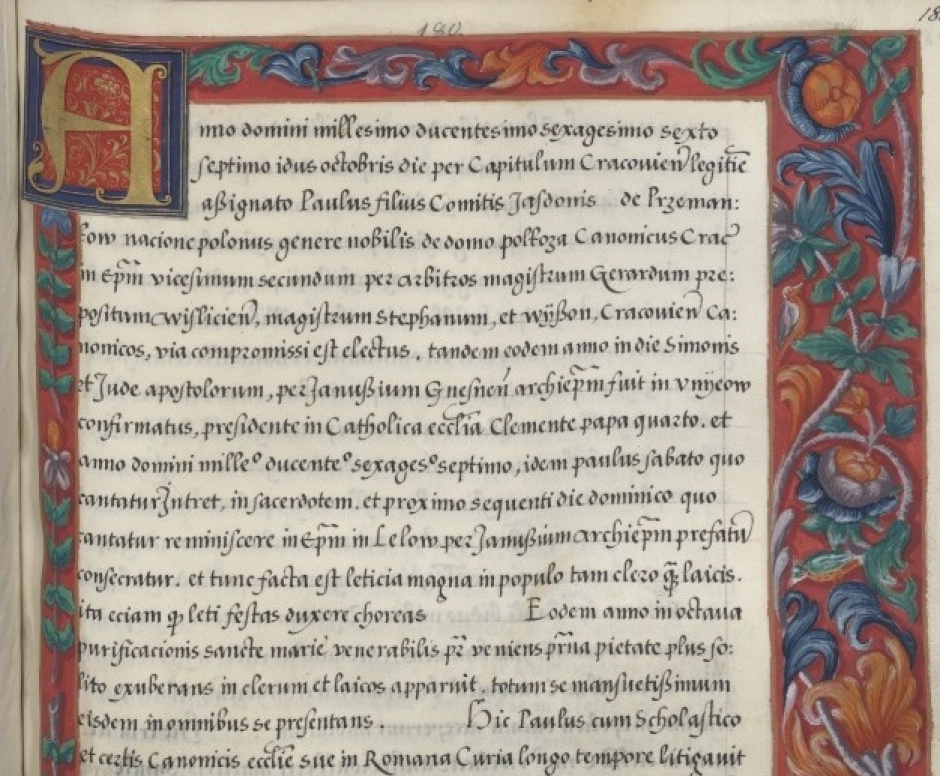 180.
18
Anno domini millesimo ducentesimo sexagesimo sexto
septimo idus octobris die per Capitulum Cracovieñ legitĩe
aßignato Paulus filius Comitis Jasdonis de Przeman:
kow nacione polonus genere nobilis de domo polkoza Canonicus Crac̃
in Ep̃m vicesimum secundum per arbitros magistrum Gerardum pre:
positum wislicieñ, magistrum Stephanum, et wÿßon, Cracovieñ Ca:
nonicos, via compromissi est electus, tandem eodem anno in die Simonis
et Jude apostolorum, per Janußium Gnesneñ archiep̃m fuit in vnÿeow
confirmatus, presidente in Catholica ecclĩa Clemente papa quarto. et
anno domini milleº ducenteº sexagesº septimo, idem paulus sabato quo
cantatur Intret, in sacerdotem. et proximo sequenti die dominico quo
cantatur reminiscere in Ep̃m in Lelow per Janußium archiep̃m prefatũ
consecratur. et tunc facta est leticia magna in populo tam clero q̃ laicis.
ita eciam ꝙ leti festas duxere choreas Eodem anno in octava
purificacionis sancte marie venerabilis pr̃ veniens pr̃na pietate plus so:
lito exuberans in clerum et laicos apparuit, totum se mansuetißimum
eisdem in omnibus se presentans. Hic Paulus cum Scholastico
et certis Canonicis ecclĩe sue in Romana Curia longo tempore litigavit